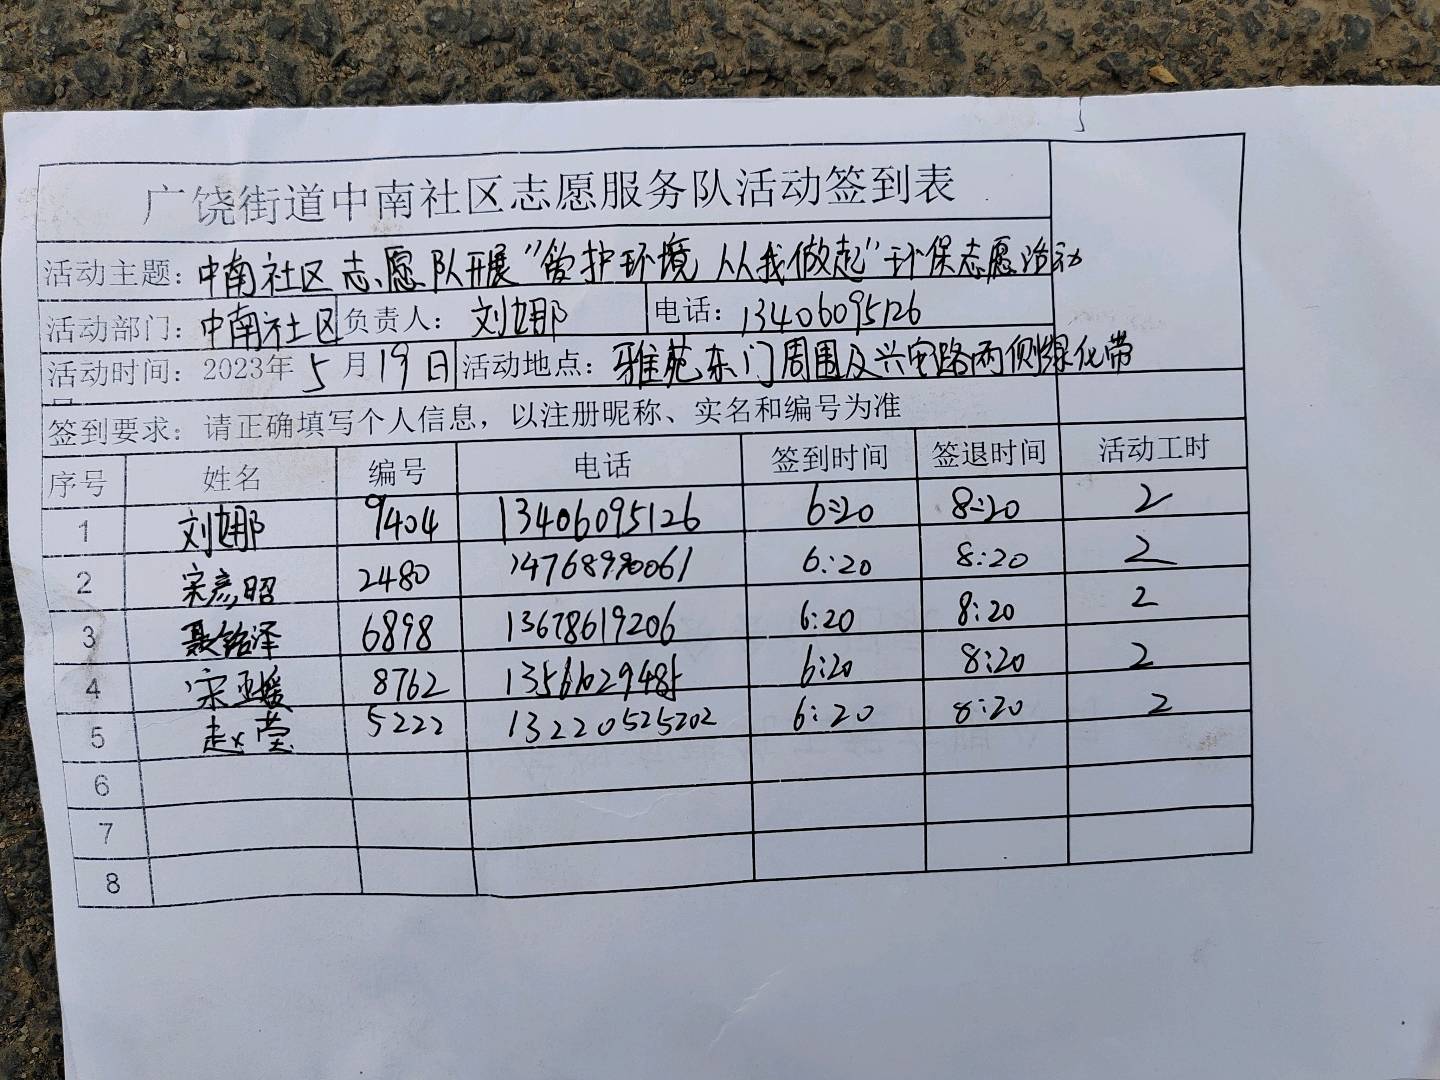 广饶街道中南社区志愿服务队活动签到表
活动主题：中南社区志愿队开展“管护环境 从我做起”环保志愿活动
活动部门：中南社区 负责人：刘娜 电话：13406095126
活动时间：2023年5月19日 活动地点：雅苑东门周围及兴安路两侧绿化带
签到要求：请正确填写个人信息，以注册昵称、实名和编号为准
序号 姓名 编号 电话 签到时间 签退时间 活动工时
1 刘娜 9404 13406095126 6:20 8:20 2
2 宋彦昭 2480 6:20 8:20 2
3 聂铭泽 6898 13678619206 6:20 8:20 2
4 宋亚媛 8762 13561029485 6:20 8:20 2
5 赵莹 5222 13220525202 6:20 8:20 2
6
7
8